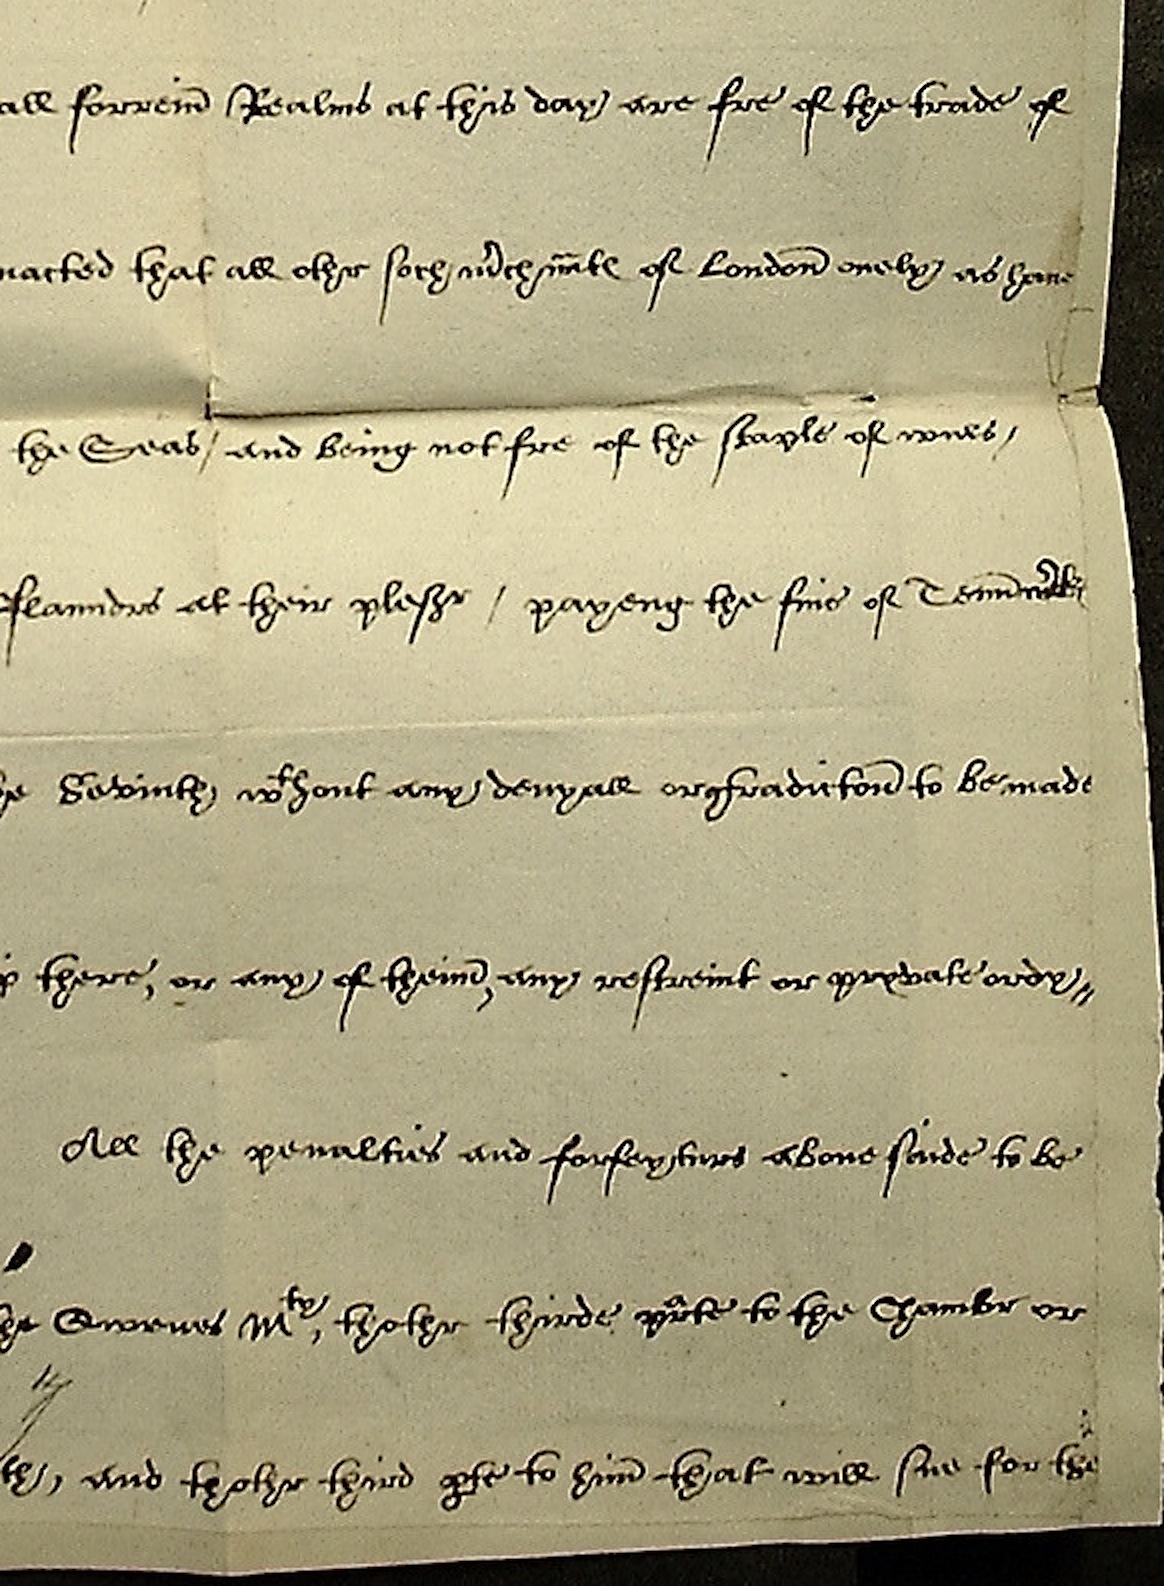 all forrein Realms at this day are fre of the trade of
nacted that all othr soch mrchmtt of London onely as haue
the Seas / and being not fre of the staple of wines /
fflaundrs at their plesr / payeng the fine of Tenn mrks
he Sevinth wthout any denyall or contradicton to be made
p there, or any of theim, any restreint or pryvate ordy //
All the penalties and forfeyturs aboue saide to be
he Quenes Mty, thothr thirde prte to the Chambr or
th, and thothr third pte to him that will sue for the